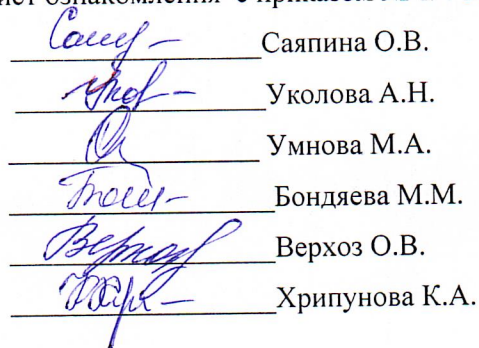 ист ознакомления с приказом
Саяпина О.В.
Уколова А.Н.
Умнова М.А.
Бондяева М.М.
Верхоз О.В.
Хрипунова К.А.